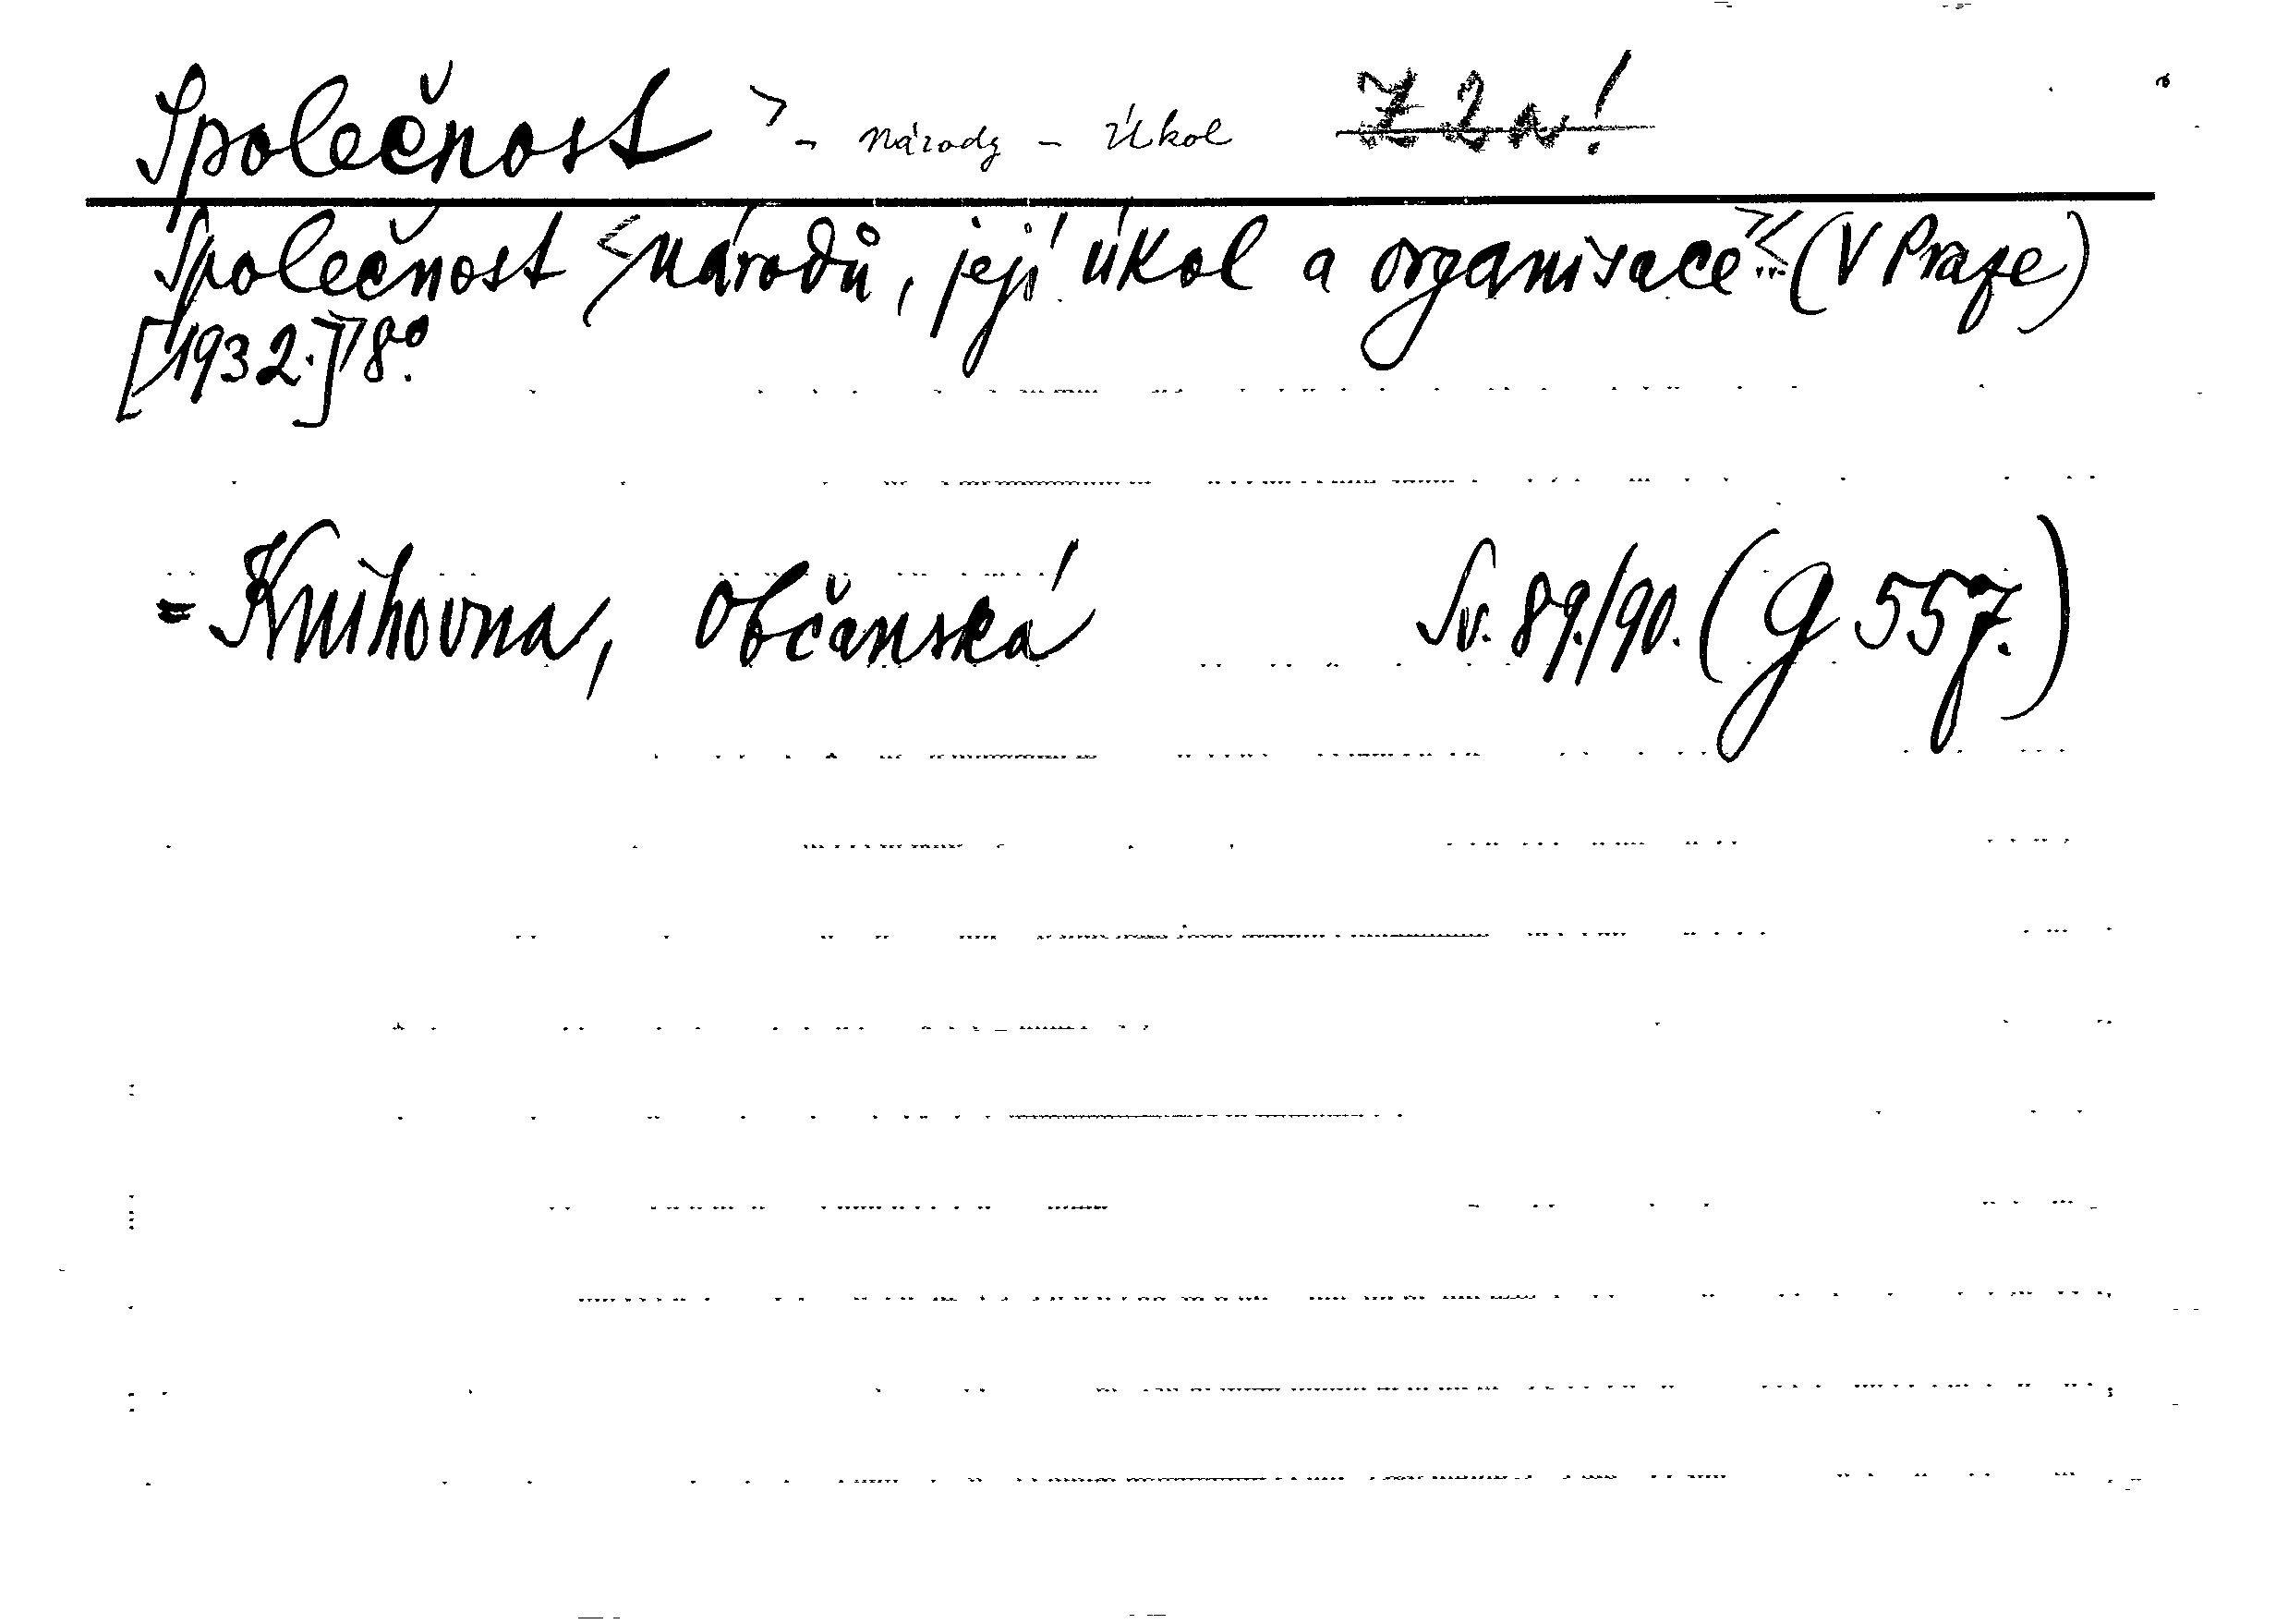 Společnost > - národy - Úkol Z 2a!
Společnost <národů, její úkol a organisace>.<(V Praze)
[1932.]> 8°.
= Knihovna, Občanská Sv. 89./90. (g 557.)